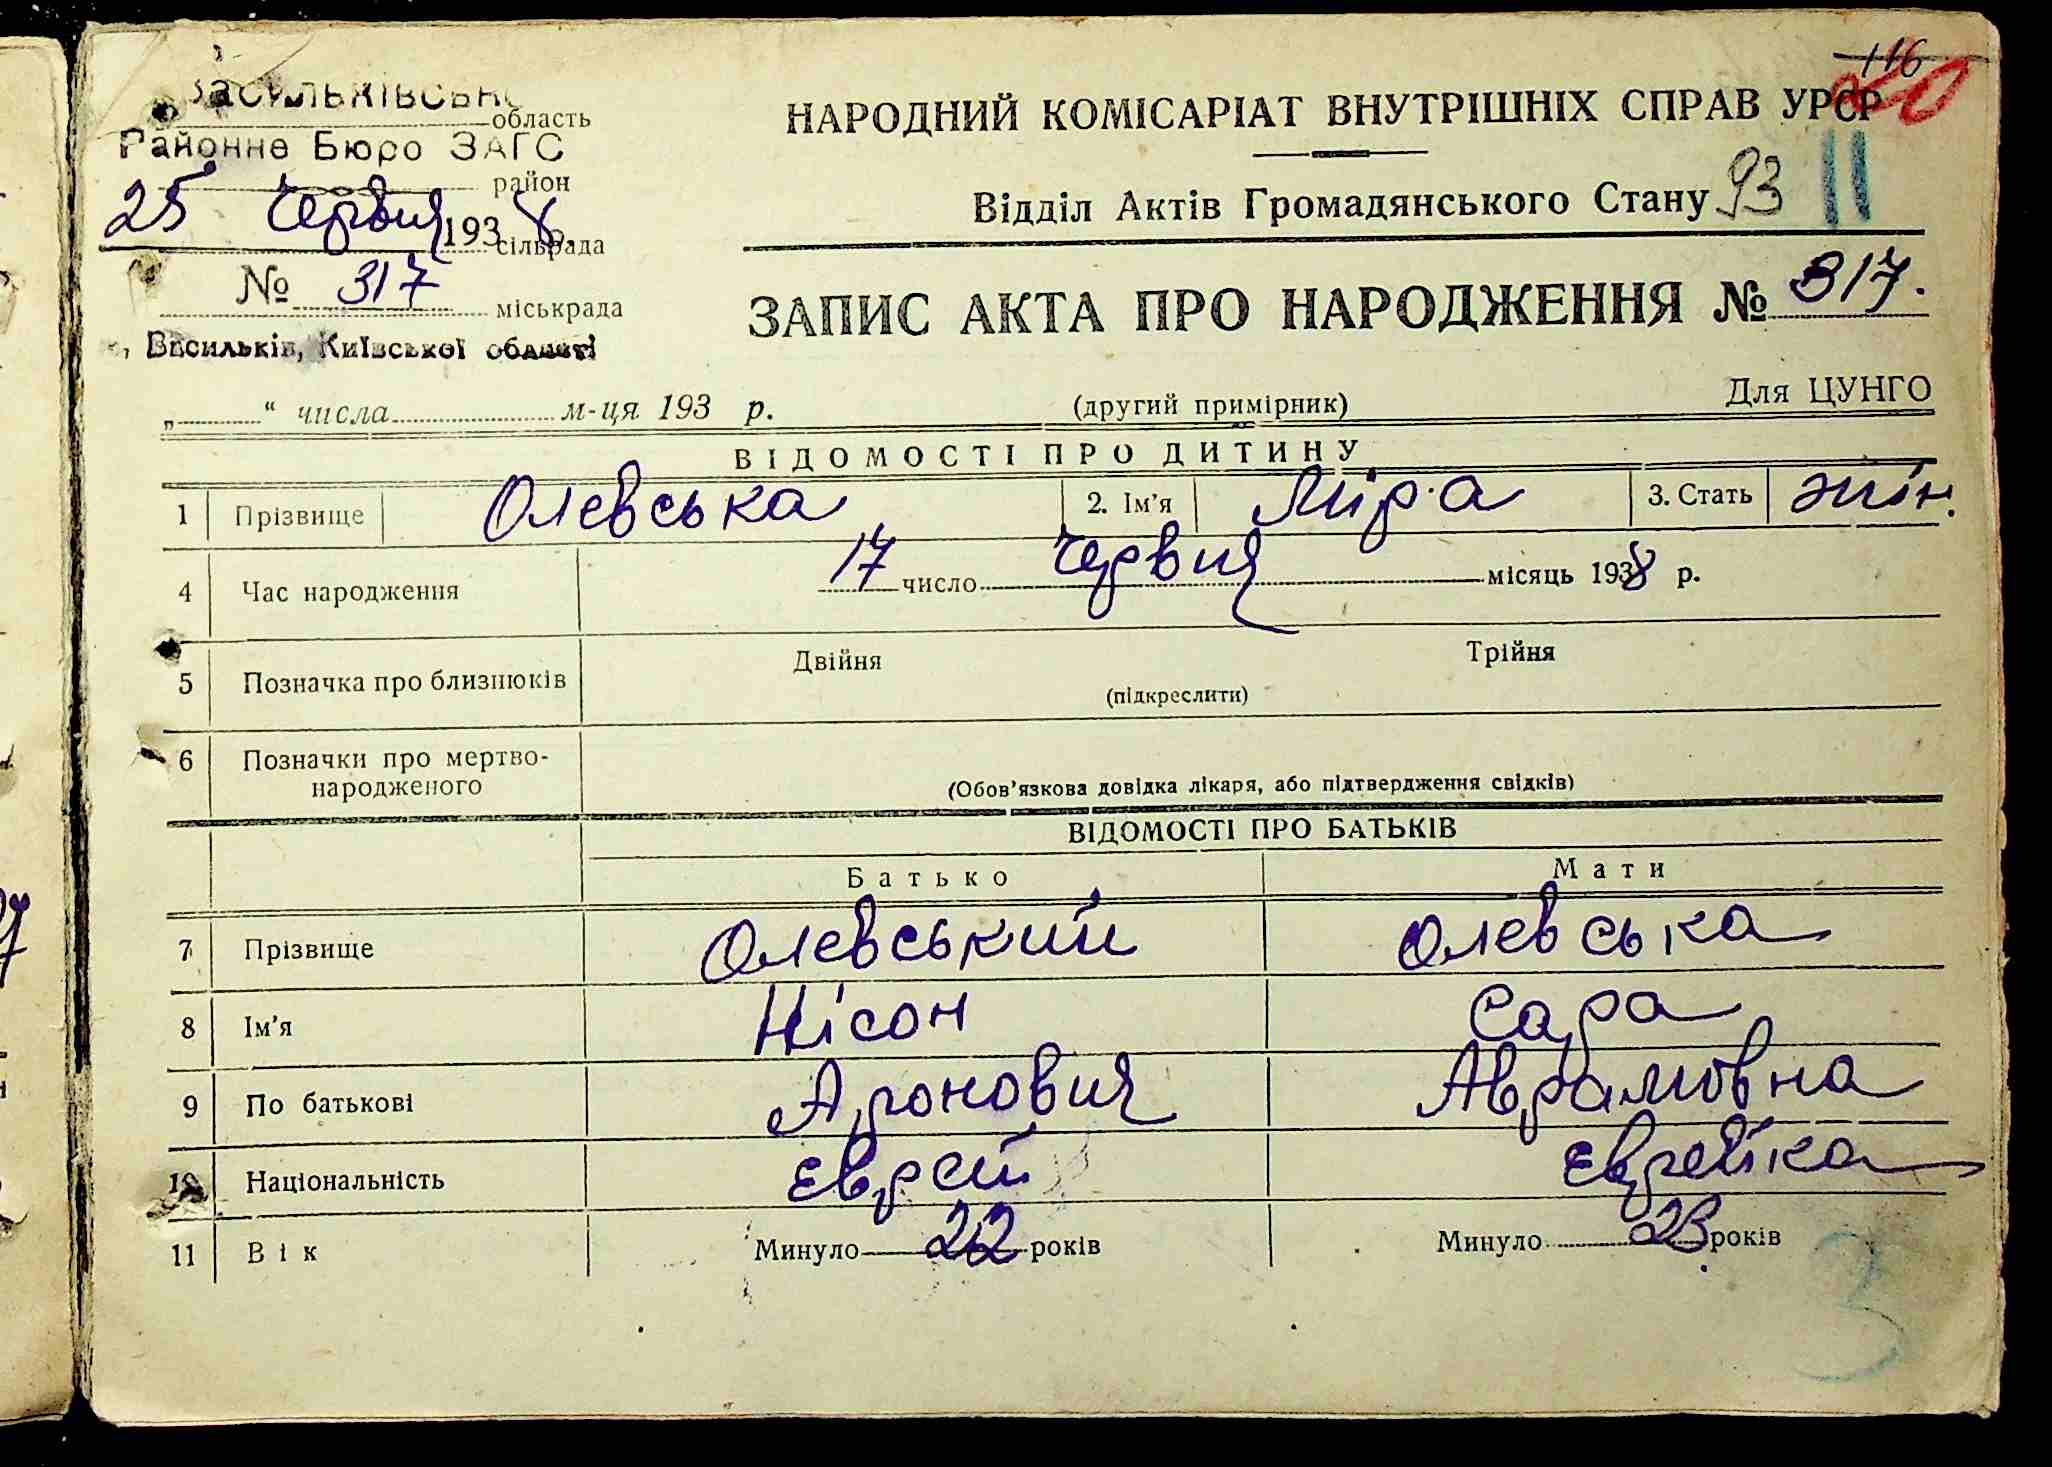 116
НАРОДНИЙ КОМІСАРІАТ ВНУТРІШНІХ СПРАВ УРСР
Відділ Актів Громадянського Стану 93 11
ЗАПИС АКТА ПРО НАРОДЖЕННЯ № 317.
Васильківськ
область
Районне Бюро ЗАГС
район
25 Червня 1938р.
сільрада
№ 317
міськрада
Васильків, Київської області
„ “ числа м-ця 193 р.
(другий примірник)
Для ЦУНГО
ВІДОМОСТІ ПРО ДИТИНУ
1 Прізвище Олевська 2. Ім'я Міра 3. Стать жін.
4 Час народження 17 число Червня місяць 1938 р.
5 Позначка про близнюків Двійня Трійня
(підкреслити)
6 Позначки про мертво-
народженого
(Обов'язкова довідка лікаря, або підтвердження свідків)
ВІДОМОСТІ ПРО БАТЬКІВ
Батько Мати
7 Прізвище Олевський Олевська
8 Ім'я Нісон Сара
9 По батькові Аронович Аврамовна
10 Національність Єврей Єврейка
11 Вік Минуло 22 років Минуло 23 років
3